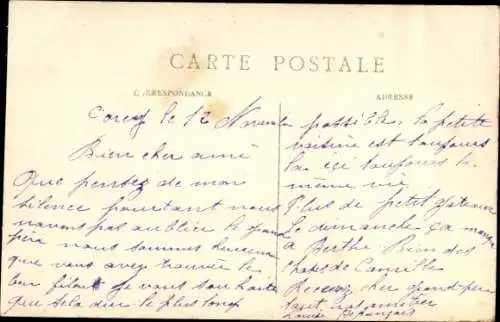 CARTE POSTALE
CORRESPONDANCE
ADRESSE
le 12 Novembre
Bien cher ami
Que pensez de mon
silence pourtant nous
navons pas oublier le grand
père nous sommes
que vous avez trouvée le
leur filon je vous souhaite
que sela dure le plus long
possible. la petite
voisine est toujours
la toujours la
même vie
Plus de petit gateaux
Le dimanche ça manque
a Berthe. Bien des
choses de Camille
Recevez cher grand-père
tout nos amitier
Louise